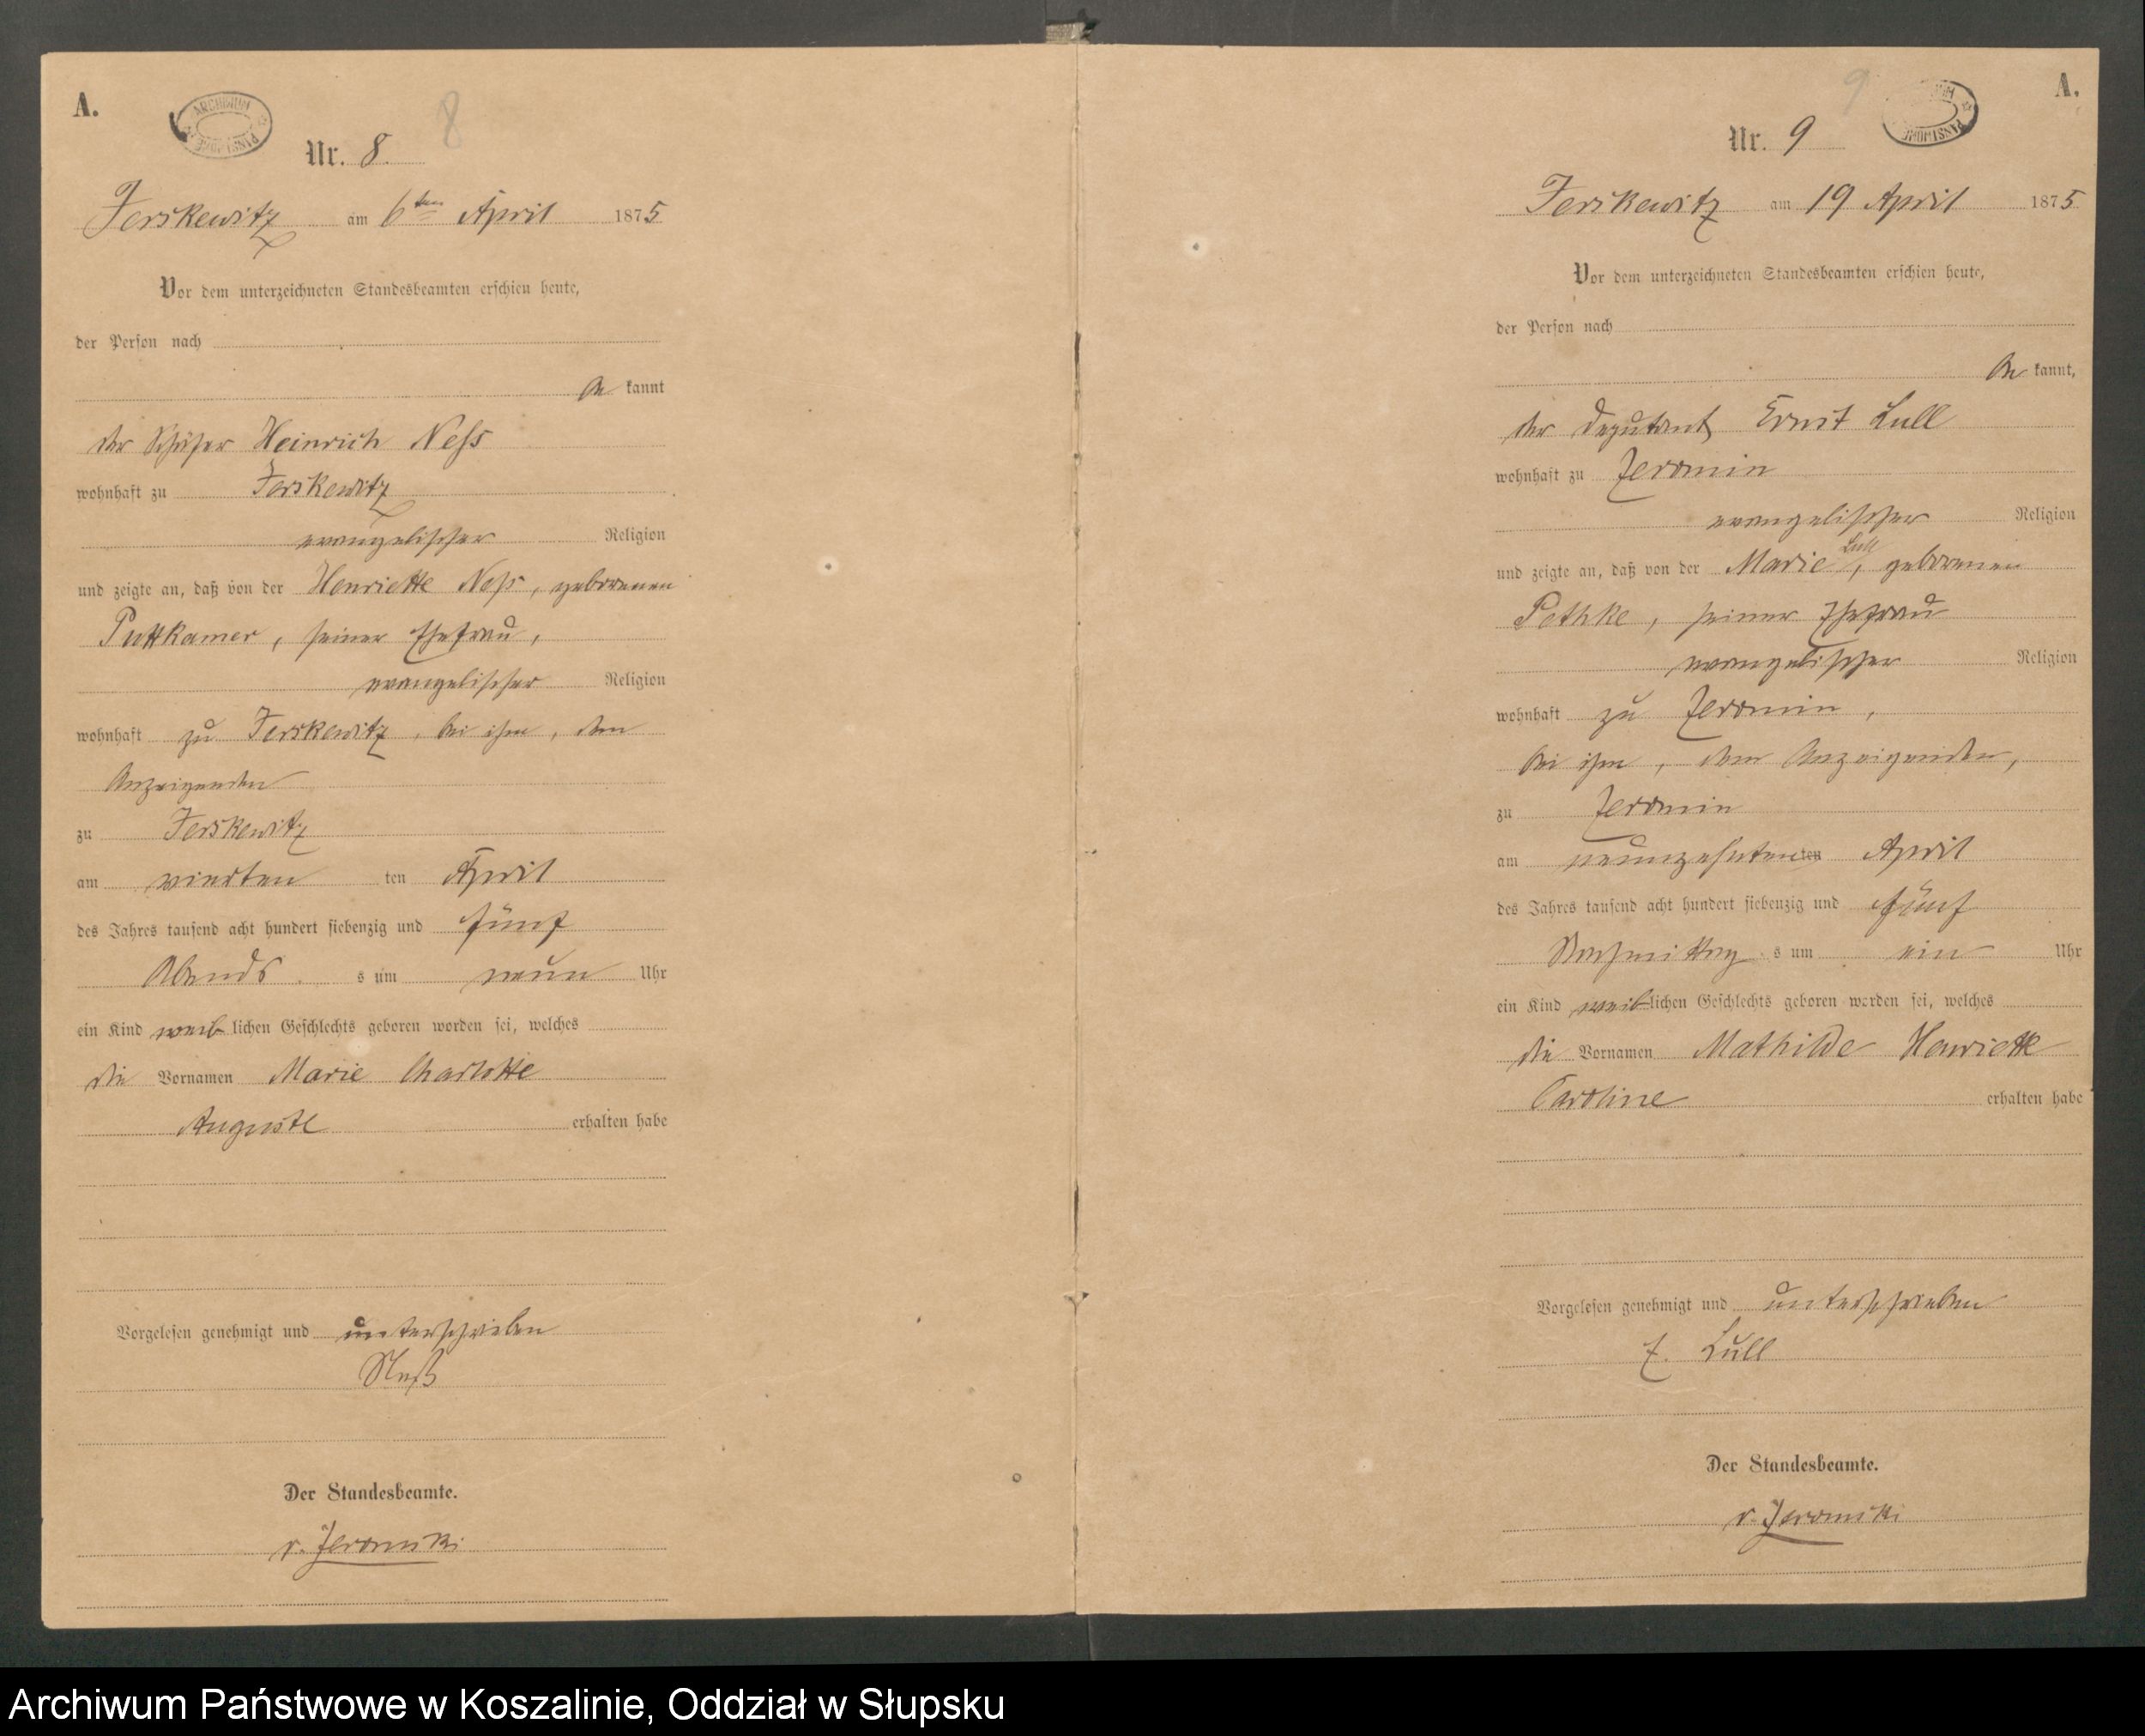 A.
ARCHIWUM PAŃSTWOWE
8
Nr. 8.
Jerskewitz am 6ten April 1875
Vor dem unterzeichneten Standesbeamten erschien heute,
der Person nach
be kannt
der Schäfer Heinrich Ness
wohnhaft zu Jerskewitz
evangelischer Religion
und zeigte an, daß von der Henriette Ness, geborenen
Puttkamer, seiner Ehefrau,
evangelischer Religion
wohnhaft zu Jerskewitz, bei ihm, dem
Anzeigenden
zu Jerskewitz
am vierten ten April
des Jahres tausend acht hundert siebenzig und fünf
Abends s um neun Uhr
ein Kind weib lichen Geschlechts geboren worden sei, welches
die Vornamen Marie Charlotte
Auguste erhalten habe
Vorgelesen genehmigt und unterschrieben
Neß
Der Standesbeamte.
v. Jerominski
A.
9
Nr. 9
Jerskewitz am 19 April 1875
Vor dem unterzeichneten Standesbeamten erschien heute,
der Person nach
be kannt,
der Deputant Ernst Lull
wohnhaft zu Jeromin
evangelischer Religion
und zeigte an, daß von der Marie Lull, geborenen
Pethke, seiner Ehefrau
evangelischer Religion
wohnhaft zu Jeromin,
bei ihm, dem Anzeigenden,
zu Jeromin
am neunzehnten ten April
des Jahres tausend acht hundert siebenzig und fünf
Nachmittag s um ein Uhr
ein Kind weib lichen Geschlechts geboren worden sei, welches
die Vornamen Mathilde Henriette
Caroline erhalten habe
Vorgelesen genehmigt und unterschrieben
E. Lull
Der Standesbeamte.
v. Jerominski
Archiwum Państwowe w Koszalinie, Oddział w Słupsku